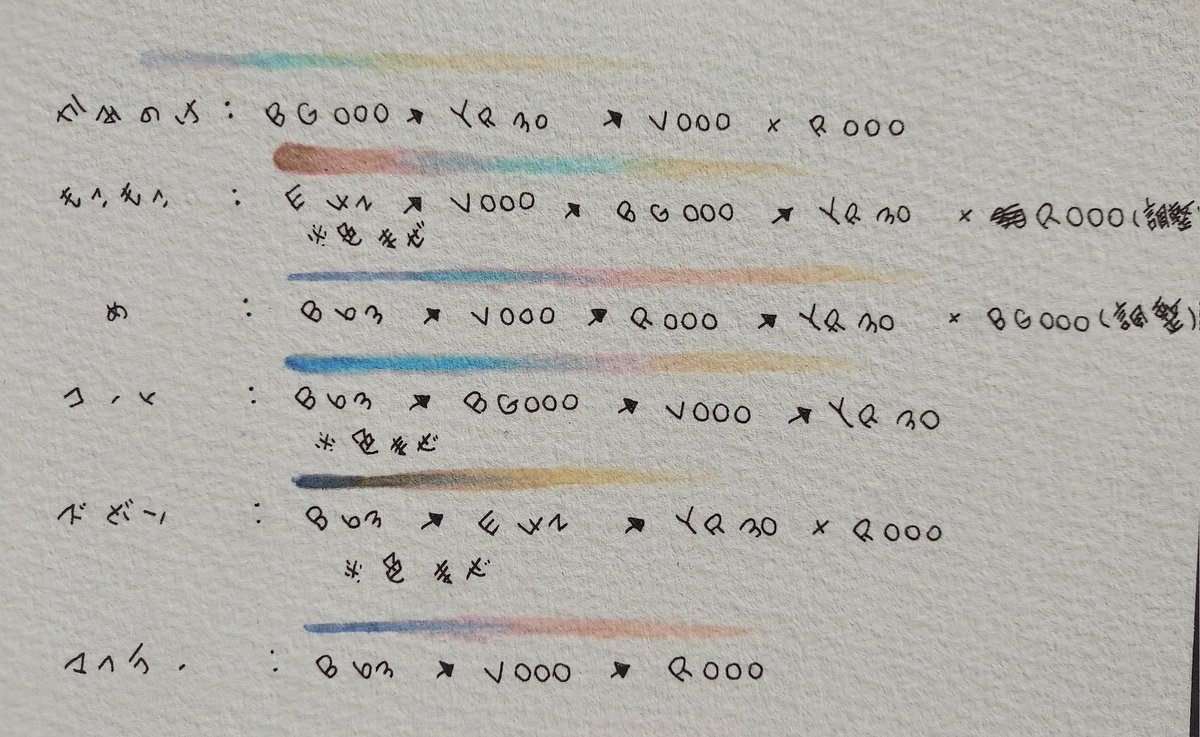 BG000 → YR30 → V000 × R000
: E42 → V000 → BG000 → YR30 × R000(調整
※色まぜ
め : B63 → V000 → R000 → YR30 × BG000(調整)
: B63 → BG000 → V000 → YR30
※色まぜ
: B63 → E42 → YR30 × R000
※色まぜ
: B63 → V000 → R000